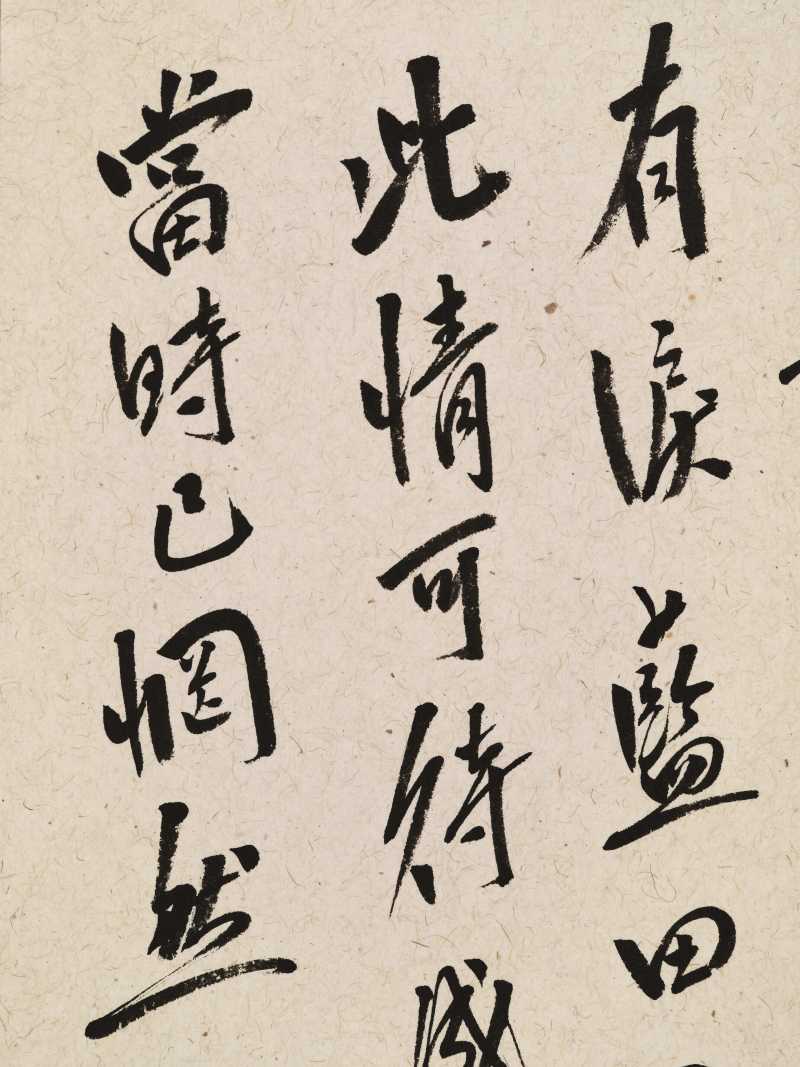 有淚藍田
此情可待成
當時已惘然